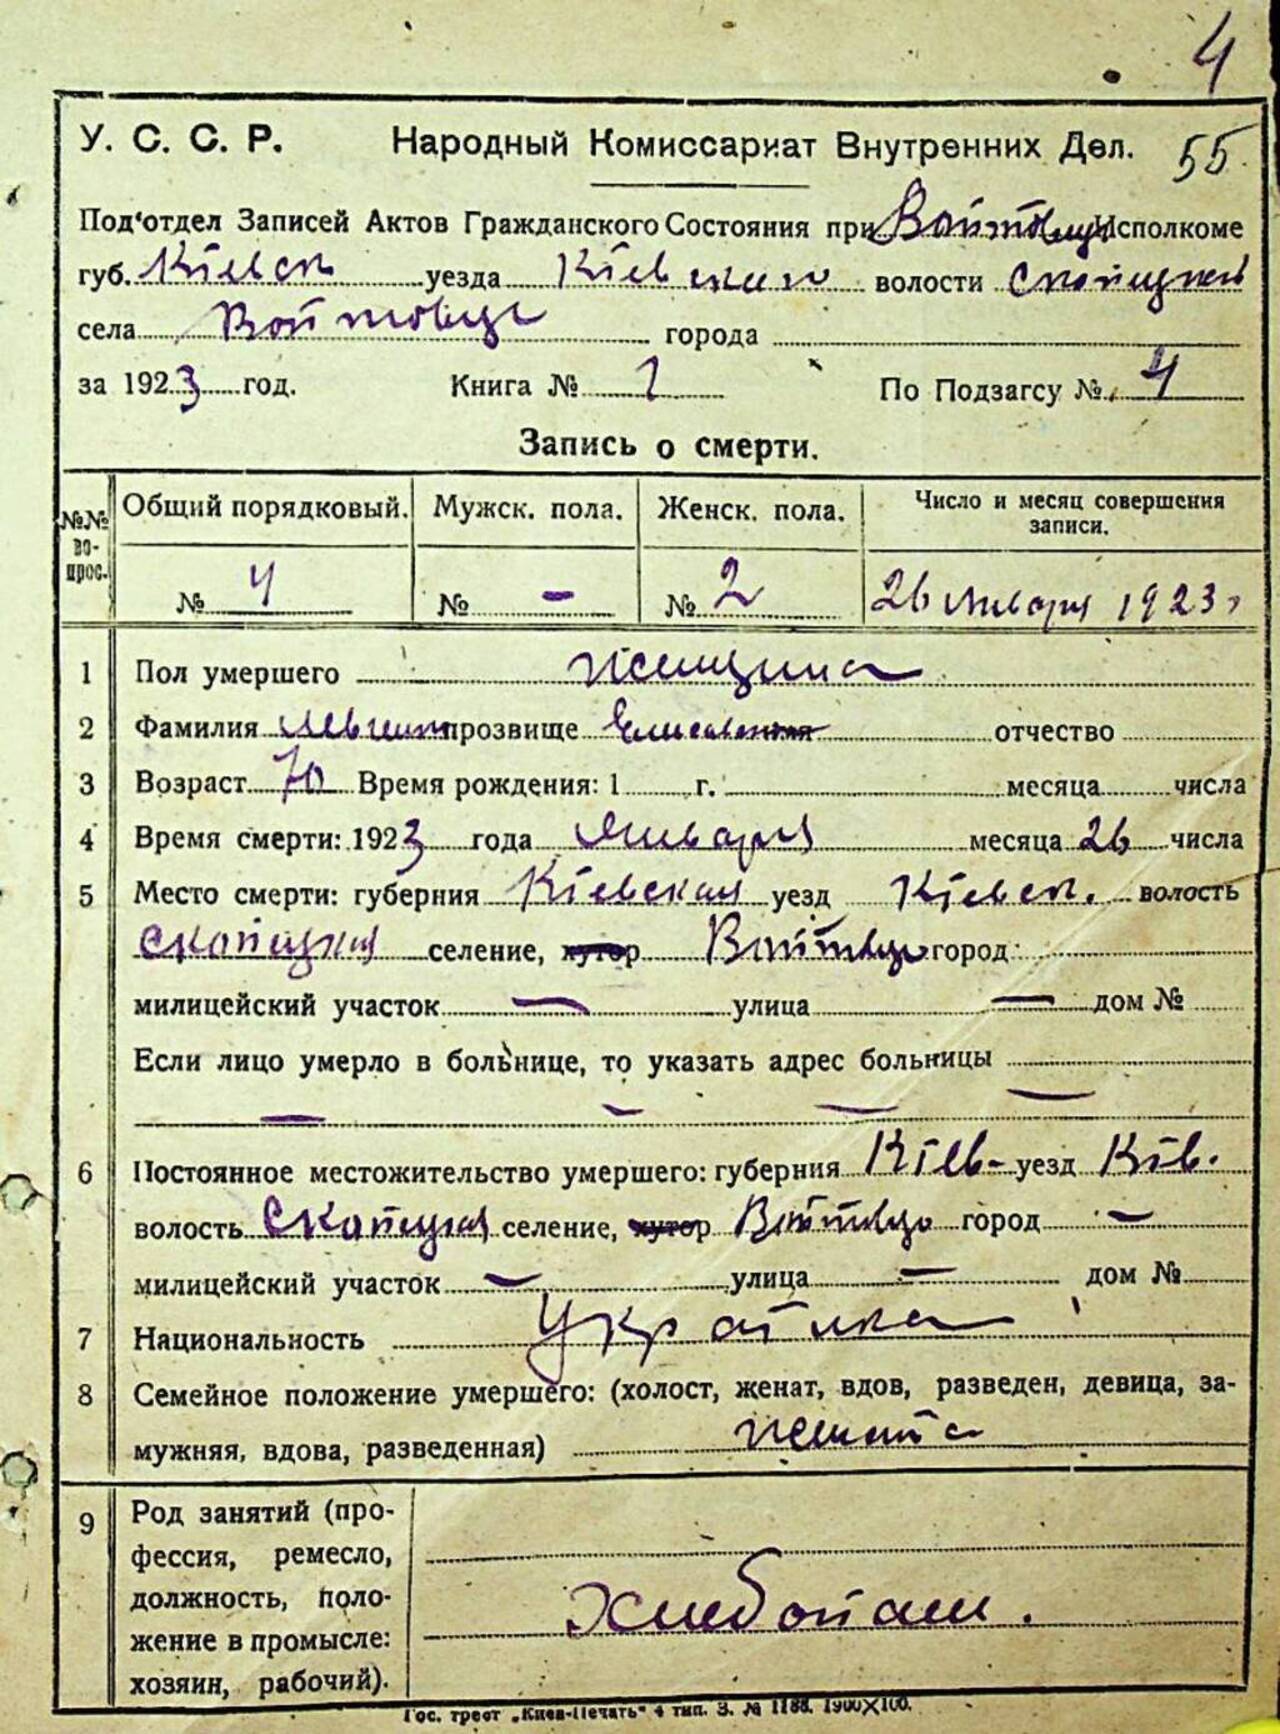 4
У. С. С. Р. Народный Комиссариат Внутренних Дел. 55.
Под'отдел Записей Актов Гражданского Состояния при Войтовец Исполкоме
губ. Кіевск уезда Кіевскаго волости
села Войтовець города
за 1923 год. Книга № 1 По Подзагсу № 4
Запись о смерти.
№№ во- прос. Общий порядковый. Мужск. пола. Женск. пола. Число и месяц совершения записи.
№ 4 № - № 2 26 Января 1923,
1 Пол умершего женщина
2 Фамилия прозвище отчество
3 Возраст 70 Время рождения: 1 г. месяца числа
4 Время смерти: 1923 года Января месяца 26 числа
5 Место смерти: губерния Кіевская уезд Кіевск. волость
Скопецкая селение, хутор Войтовць город
милицейский участок — улица — дом №
Если лицо умерло в больнице, то указать адрес больницы
— — — —
6 Постоянное местожительство умершего: губерния Кіев- уезд Кіев.
волость Скопецкая селение, хутор Войтовць город —
милицейский участок — улица — дом №
7 Национальность Україмка
8 Семейное положение умершего: (холост, женат, вдов, разведен, девица, за-
мужняя, вдова, разведенная) жената
9 Род занятий (про-
фессия, ремесло,
должность, поло-
жение в промысле:
хозяин, рабочий).
Хлебопаш.
Гос. трест „Киев-Печать" 4 тип. З. № 1188. 1900×100.